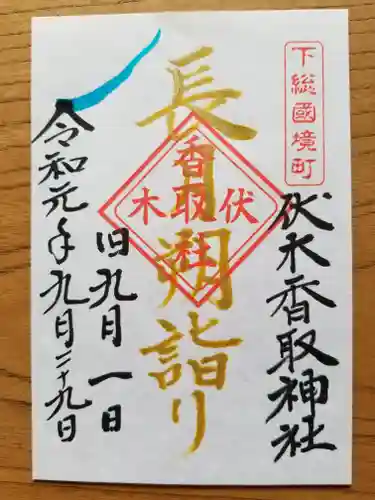 下総國境町
伏木香取神社
長月朔詣り
香取社
伏木
旧九月一日
令和元年九月二十九日